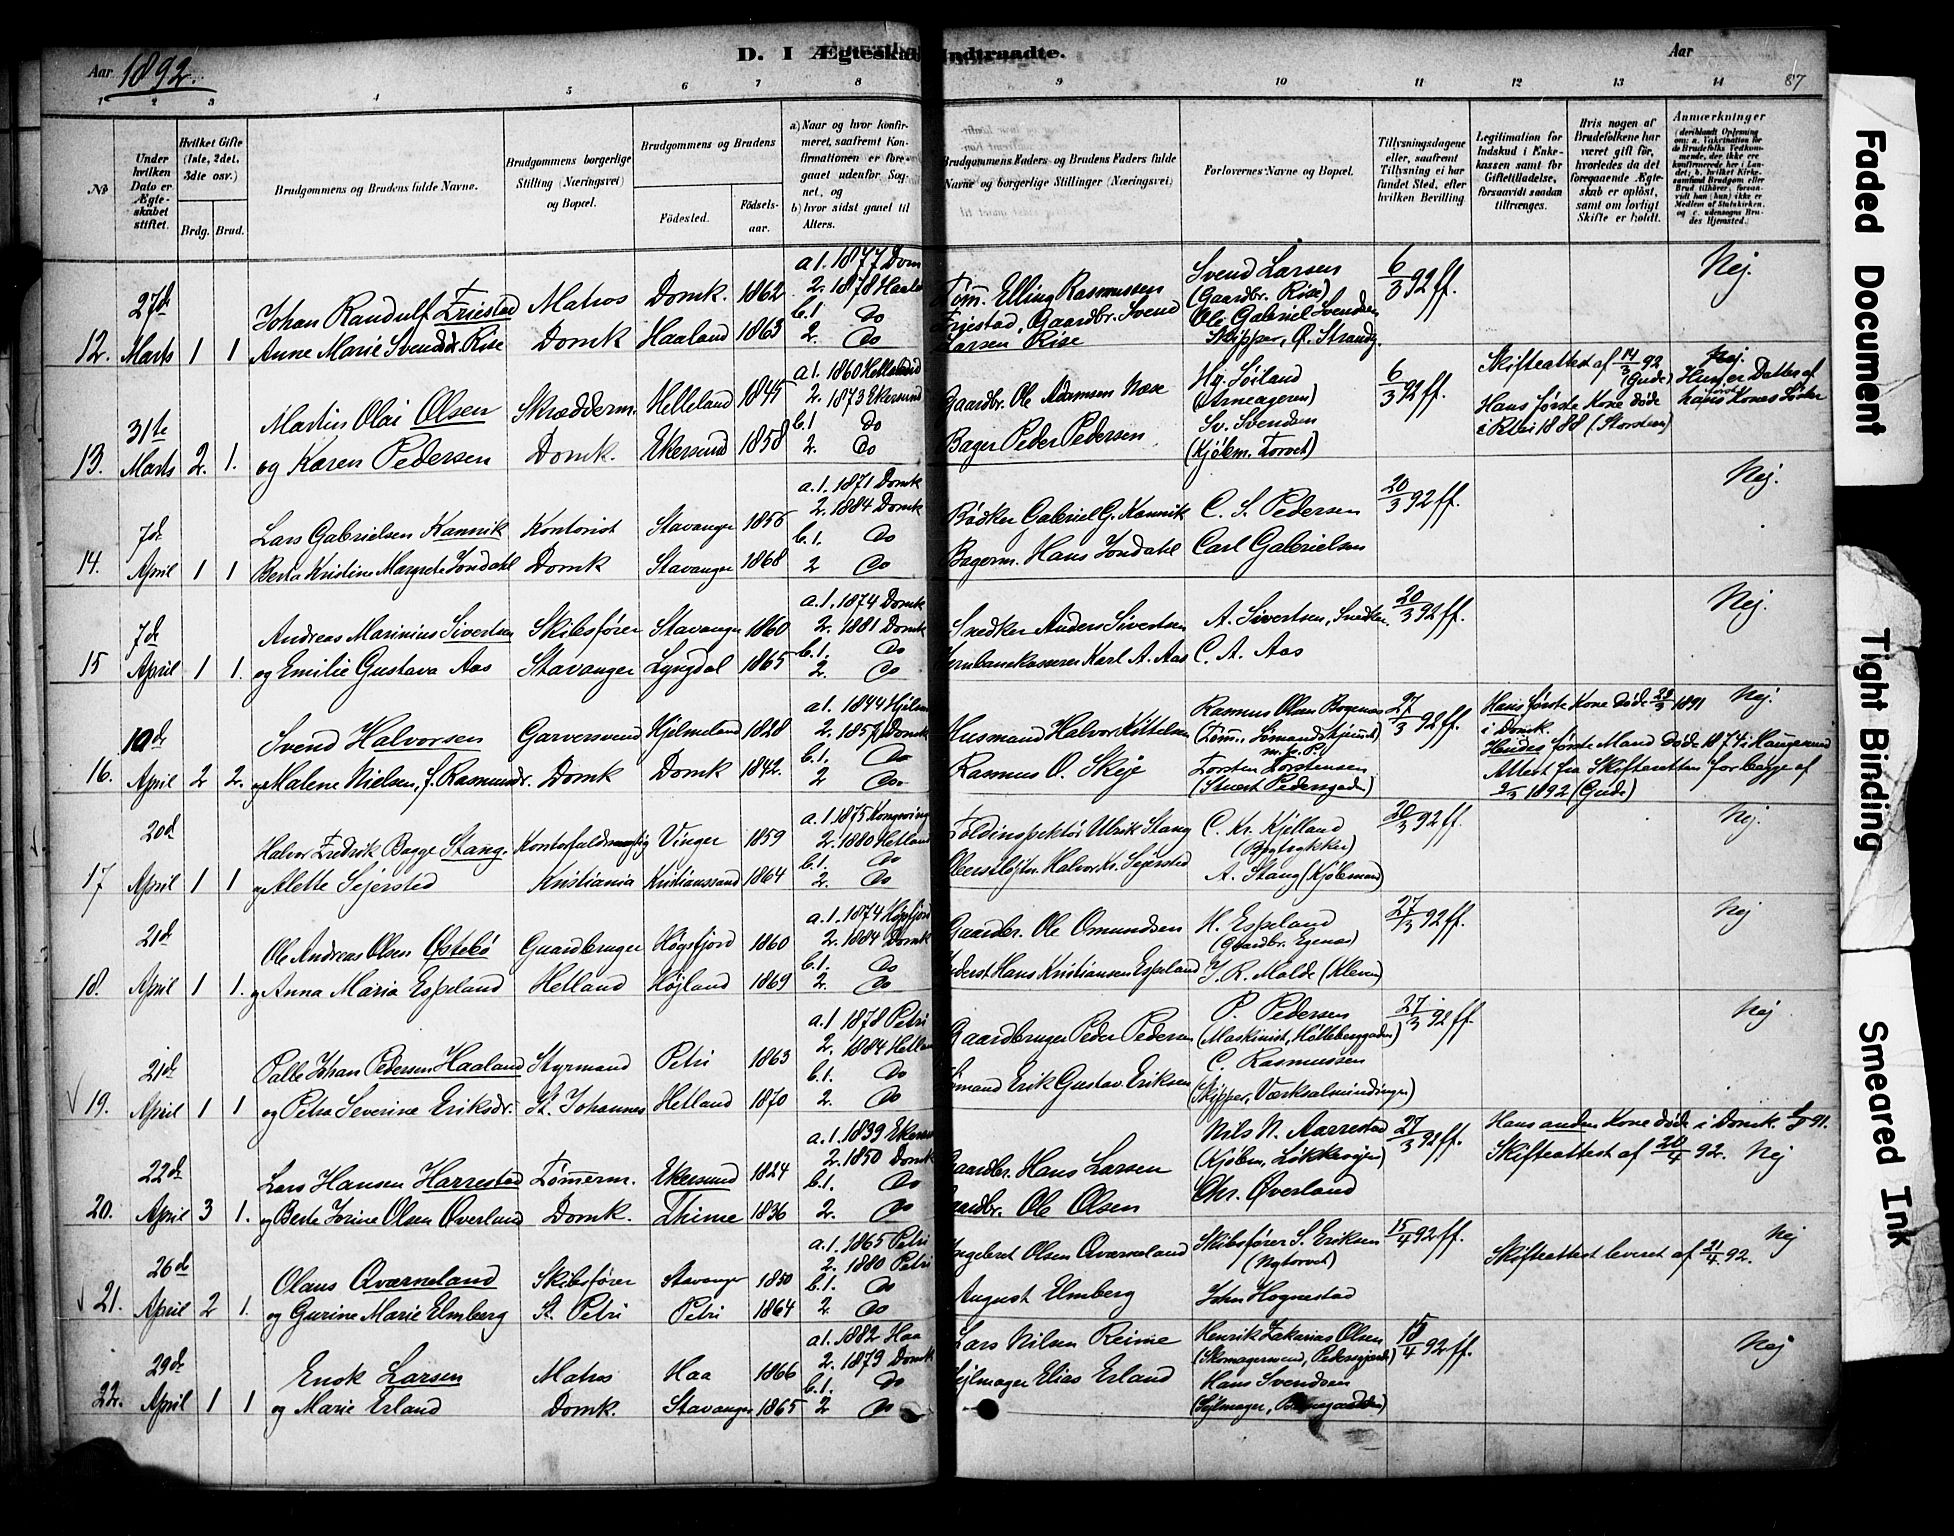 D. I Ægteskab Indtraadte.
Aar 1892.
Aar
87
1 2 3 4 5 6 7 8 9 10 11 12 13 14
No
Under hvilken Dato er Ægteskabet stiftet.
Hvilket Gifte (1ste, 2det, 3die osv.)
Brdg. Brud.
Brudgommens og Brudens fulde Navne.
Brudgommens borgerlige Stilling (Næringsvei) og Bopæl.
Brudgommens og Brudens
Födested. Födselsaar.
a) Naar og hvor konfirmeret, saafremt Konfirmationen er foregaaet udenfor Sognet, og
b) hvor sidst gaaet til Alters.
Brudgommens Faders og Brudens Faders fulde Navne og borgerlige Stillinger (Næringsvei)
Forlovernes Navne og Bopæl.
Tillysningsdagene eller, saafremt Tillysning ei har fundet Sted, efter hvilken Bevilling.
Legitimation for Indskud i Enkekassen samt for Giftetilladelse, forsaavidt saadan tiltrænges.
Hvis nogen af Brudefolkene har været gift før, hvorledes da det foregaaende Ægteskab er opløst, samt om lovligt Skifte er holdt.
Anmærkninger
12. 27de Marts 1 1
Johan Randulf Friestad Matros Domk. 1862
Anne Marie Svendsdr. Rise Domk Haaland 1863
a 1. 1877 Dom
2. 1878 Haala
b. 1 Do
2. Do
Tøm. Elling Rasmussen
Friestad, Gaardbr. Svend
Larsen Rise
Svend Larsen
(Gaardbr. Rise)
Ole Gabriel Svendsen
Skipper, Ø. Strandg.
6/3 92 ff.
Nej.
13. 31te Marts 2. 1.
Martin Olai Olsen Skrædderm. Helleland 1845
og Karen Pedersen Domk. Ekersund 1858
a 1. 1860 Helleland
2. 1873 Ekersund
b. 1 Do
2. Do
Gaardbr. Ole Adamsen Næse
Bager Peder Pedersen
Hg. Soiland
(Arneageren)
Sv. Svendsen
(Kjøbm. Torvet)
6/3 92 ff.
Skifteattest af 14/3 92
(Gude)
Hans første Kone døde
1888 (Storsteen)
Nej.
Hun er Datter af
hans Kones Søster
14. 7de April 1 1
Lars Gabrielsen Kannik Kontorist Stavanger 1856
Berta Kristine Margrete Jondahl Domk Stavanger 1868
a. 1. 1871 Domk
2. 1884 Domk
b. 1. Do
2 Do
Bødker Gabriel G. Kannik
Bagerm. Hans Jondahl
C. S. Pedersen
Carl Gabrielsen
20/3 92 ff.
Nej.
15 7de April 1 1.
Andreas Marinius Sivertsen Skibsfører Stavanger 1860
og Emilie Gustava Aas Stavanger Lyngdal 1865
a. 1. 1874 Domk
2. 1881 Domk
b. 1. Do
2. Do
Snedker Anders Sivertsen
Jernbanekasserer Karl A. Aas
A. Sivertsen, Snedker
C. A. Aas
20/3 92 ff.
Nej.
16. 10de April 2 2.
Svend Halvorsen Garversvend Hjelmeland 1828
og Malene Nielsen, f. Rasmusdr. Domk Domk 1842.
a 1. 1844 Hjelm
2. 1857 Domk
b. 1. Do
2 Do.
Husmand Halvor Kittelsen
Rasmus O. Skeje
Rasmus Olsen Bogenæs
Torsten Torstensen
(Stuert Pedersgaden)
27/3 92 ff.
Hans første Kone døde 29/3 1891
i Domk.
Hendes første Mand døde 1874 i Haugesund
Attest fra Skifteretten for begge af
1892 (Gude)
Nej.
17 20de April 1 1
Halvor Fredrik Bagge Stang. Kontorfuldmægtig Vinger 1859
og Alette Sejersted Kristiania Kristianssand 1864
a. 1. 1875 Kongsving
2. 1880 Hetland
b. 1. Do
2. Do
Toldinspektør Ulrik Stang
Oberstløjtn. Halvor Kr. Sejersted
C. Kr. Kjelland
(Bogtrykker)
A. Stang (Kjøbmand)
20/3 92 ff.
Nej.
18. 21de April 1 1.
Ole Andreas Olsen Østebö Gaardbruger Høgsfjord 1860
og Anna Maria Espeland Hetland Højland 1869
a. 1. 1874 Högsfjord
2. 1884 Domk
b. 1. Do
2. Do
Gaardbr. Ole Omundsen
Inderst. Hans Kristiansen Espeland
H. Espeland
(Gaardbr. Egenæs)
J. R. Malde (Kleven)
27/3 92 ff.
Nej
19. 21de April 1 1
Palle Johan Pedersen Haaland Styrmand Petri 1863
og Petra Severine Eriksdr. St. Johannes Hetland 1870
a. 1 1878 Petri
2. 1884 Hetlan
b. 1. Do
2. Do
Gaardbruger Peder Pedersen
Sömand Erik Gustav Eriksen
P. Pedersen
(Maskinist, Holteberggaden)
C. Rasmussen
(Skipper, Værksalmindingen)
27/3 92 ff.
Nej
20. 22de April 3 1.
Lars Hansen Harrestad Tömerm. Ekersund 1824
og Berte Jorine Olsen Øverland Domk. Thime 1836
a. 1. 1839 Ekers
2. 1850 Domk
b. 1. Do
2. Do
Gaardbr. Hans Larsen
Gaardbr. Ole Olsen
Nils N. Aarrestad
(Kjøbm, Løkkevejen)
Chr. Øverland
27/3 92 ff.
Hans anden Kone døde i Domk. 91.
Skifteattest af 20/4 92.
Nej
21. 26de April 2 1.
Olaus Qværneland Skibsfører Stavanger 1850
og Gurine Marie Elmberg St. Petri Petri 1864
a. 1. 1865 Petri
2. 1880 Petri
b. 1. Do
2. Do
Ingebret Olsen Qværneland
August Elmberg
Skibsfører S. Eriksen
(Nytorvet)
John Hognestad
15/4 92 ff.
Skifteattest leveret af 21/4 92.
Nej
22. 29de April 1 1
Enok Larsen Matros Haa 1866
og Marie Erland Domk. Stavanger 1865
a 1. 1882 Haa
2. 1879 Domk
b. 1. Do
2 Do
Lars Nilsen Reime
Sejlmager Elias Erland
Henrik Zakarias Olsen
(Skomagersvend, Pedersgaden)
Hans Svendsen
(Sejlmager,
15/4 92 ff.
Nej
Faded Document
Tight Binding
Smeared Ink